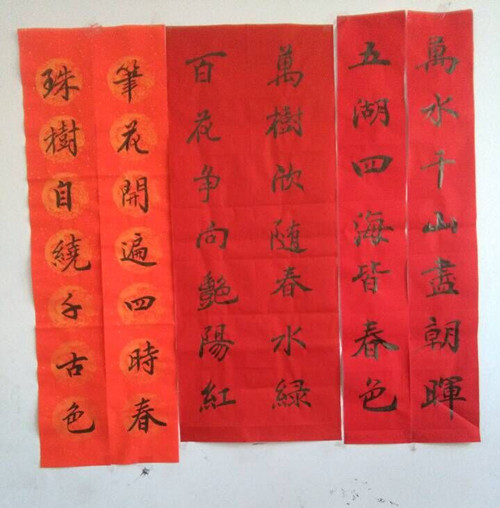 萬水千山盡朝暉
五湖四海皆春色
萬樹欣隨春水緑
百花争向艷陽紅
筆花開遍四時春
珠樹自繞千古色